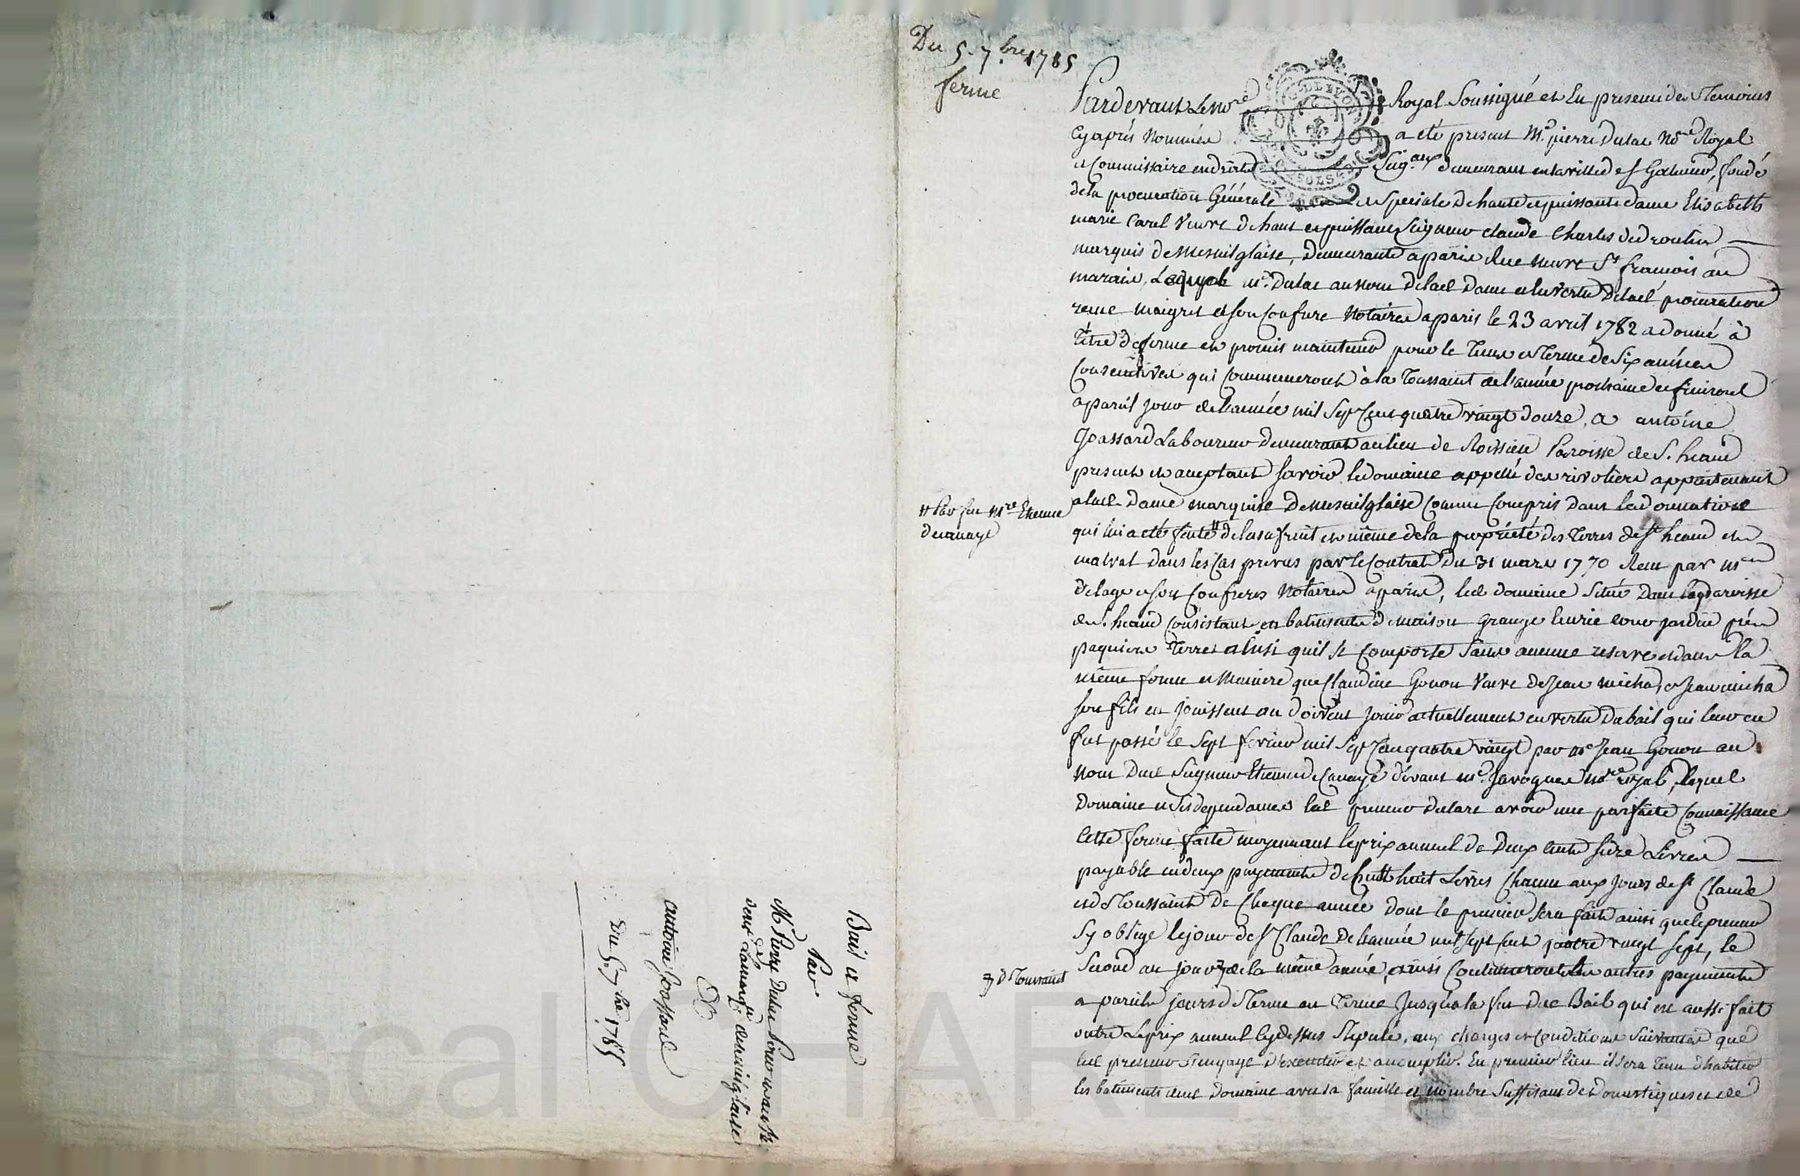 Du 5. 7.bre 1785
ferme
Pardevant Le no.re Royal Soussigné et En presence des Temoins
Cy après Nommés a été present M.e pierre Dulac No.re Royal
et Commissaire en droits Seig.aux demeurant en la ville de S.t Galmier, fondé
de la procuration Générale et Speciale de haute et puissante dame Elisabeth
marie Carel Veuve de haut et puissant Seigneur Claude Charles
marquis de Mesnilglaise, Demeurante a paris Rue neuve S.t francois au
marais, Lequel M.e Dulac au nom de lad. Dame et En vertu de lad. procuration
recue maigret et son Confrere Notaires a paris le 23 avril 1782 a donné à
Titre de ferme et promis maintenir pour le Tems et Terme de Six années
Consecutives qui Commenceront à la Toussaint de l'année prochaine et finiront
a pareil jour de l'année mil Sept Cent quatre vingt douze, a antoine
Joassard Laboureur demeurant au lieu de Paroisse de S.t heand
present et acceptant Savoir le domaine appellé des rivolieres appartenant
a lad. Dame marquise De Mesnilglaise Comme Compris dans la donation
qui lui a été faite de l'usufruit et même de la propriété des Terres de S.t heand et
malval dans les Cas prevus par le Contrat du 31 mars 1770 Recu par m.e
Delage et son Confrere Notaires a paris, led. domaine Situé dans la paroisse
de S.t heand Consistant en batiments de maison Grange Ecurie Cour jardin prés
paquiers Terres ainsi qu'il se Comporte Sans aucune reserve et dans la
même forme et Maniere que Claudine Gonon Veuve de Jean micha, et Jean micha
son fils en jouissent ou doivent jouir actuellement en vertu du bail qui leur en
fut passé le Sept fevrier mil Sept Cent quatre vingt par M.e Jean Gonon au
nom Dud. Seigneur Etienne devant M.e Javogues no.re royal, Lequel
Domaine et Ses dependances led. preneur declare avoir une parfaite Connaissance
Cette ferme faite moyennant le prix annuel de Deux Cents Seize Livres
payable en deux payements de Cent huit Livres Chacun aux Jours de S.t Claude
et de Toussaint De Chaque année dont le premier Sera fait ainsi que le preneur
S'y oblige le jour de S.t Claude De l'année mil Sept Cent quatre vingt Sept, le
Second au jour de la même année, ainsi Continueront les autres payements
a pareils jours de Terme en Terme Jusqu'à la fin Dud. Bail qui est aussi fait
outre Le prix annuel Cy dessus Stipulé, aux charges et Conditions Suivantes que
led. preneur S'engage D'executer et accomplir. En premier lieu il sera Tenu d'habiter
les batiments dud. Domaine avec sa famille et nombre Suffisant de Domestiques et de
# Par feu M.re Etienne
de Toussaint
Bail a ferme
Par
M.e Pierre Dulac
dame la marquise de mesnilglaise
a
antoine Joassard
Du 5. 7.bre 1785
scal CHAR